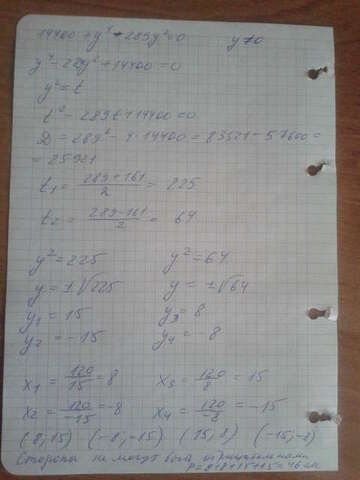 14400 + y⁴ - 289y² = 0 y ≠ 0
y⁴ - 289y² + 14400 = 0
y² = t
t² - 289t + 14400 = 0
D = 289² - 4·14400 = 83521 - 57600 =
= 25921
t₁ = (289+161)/2 = 225
t₂ = (289-161)/2 = 64
y² = 225 y² = 64
y = ±√225 y = ±√64
y₁ = 15 y₃ = 8
y₂ = -15 y₄ = -8
x₁ = 120/15 = 8 x₃ = 120/8 = 15
x₂ = 120/-15 = -8 x₄ = 120/-8 = -15
(8, 15) (-8, -15) (15, 8) (-15, -8)
Стороны не могут быть отрицательными
P = 8+8+15+15 = 46 см